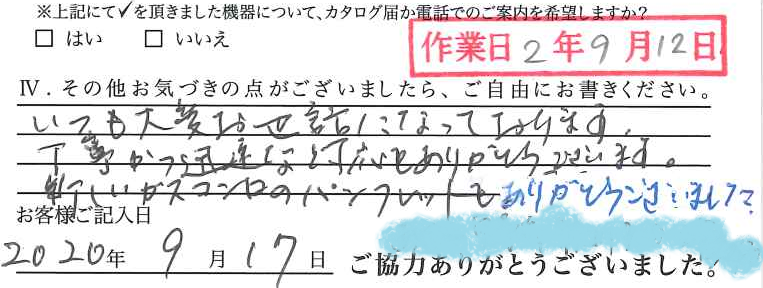 ※上記にて✓を頂きました機器について、カタログ届か電話でのご案内を希望しますか?
□ はい □ いいえ
作業日 2 年 9 月 12 日
Ⅳ．その他お気づきの点がございましたら、ご自由にお書きください。
いつも大変お世話になっております。
丁寧かつ迅速な対応をありがとうございます。
新しいガスコンロのパンフレットもありがとうございました
お客様ご記入日
2020年 9 月 17 日 ご協力ありがとうございました。